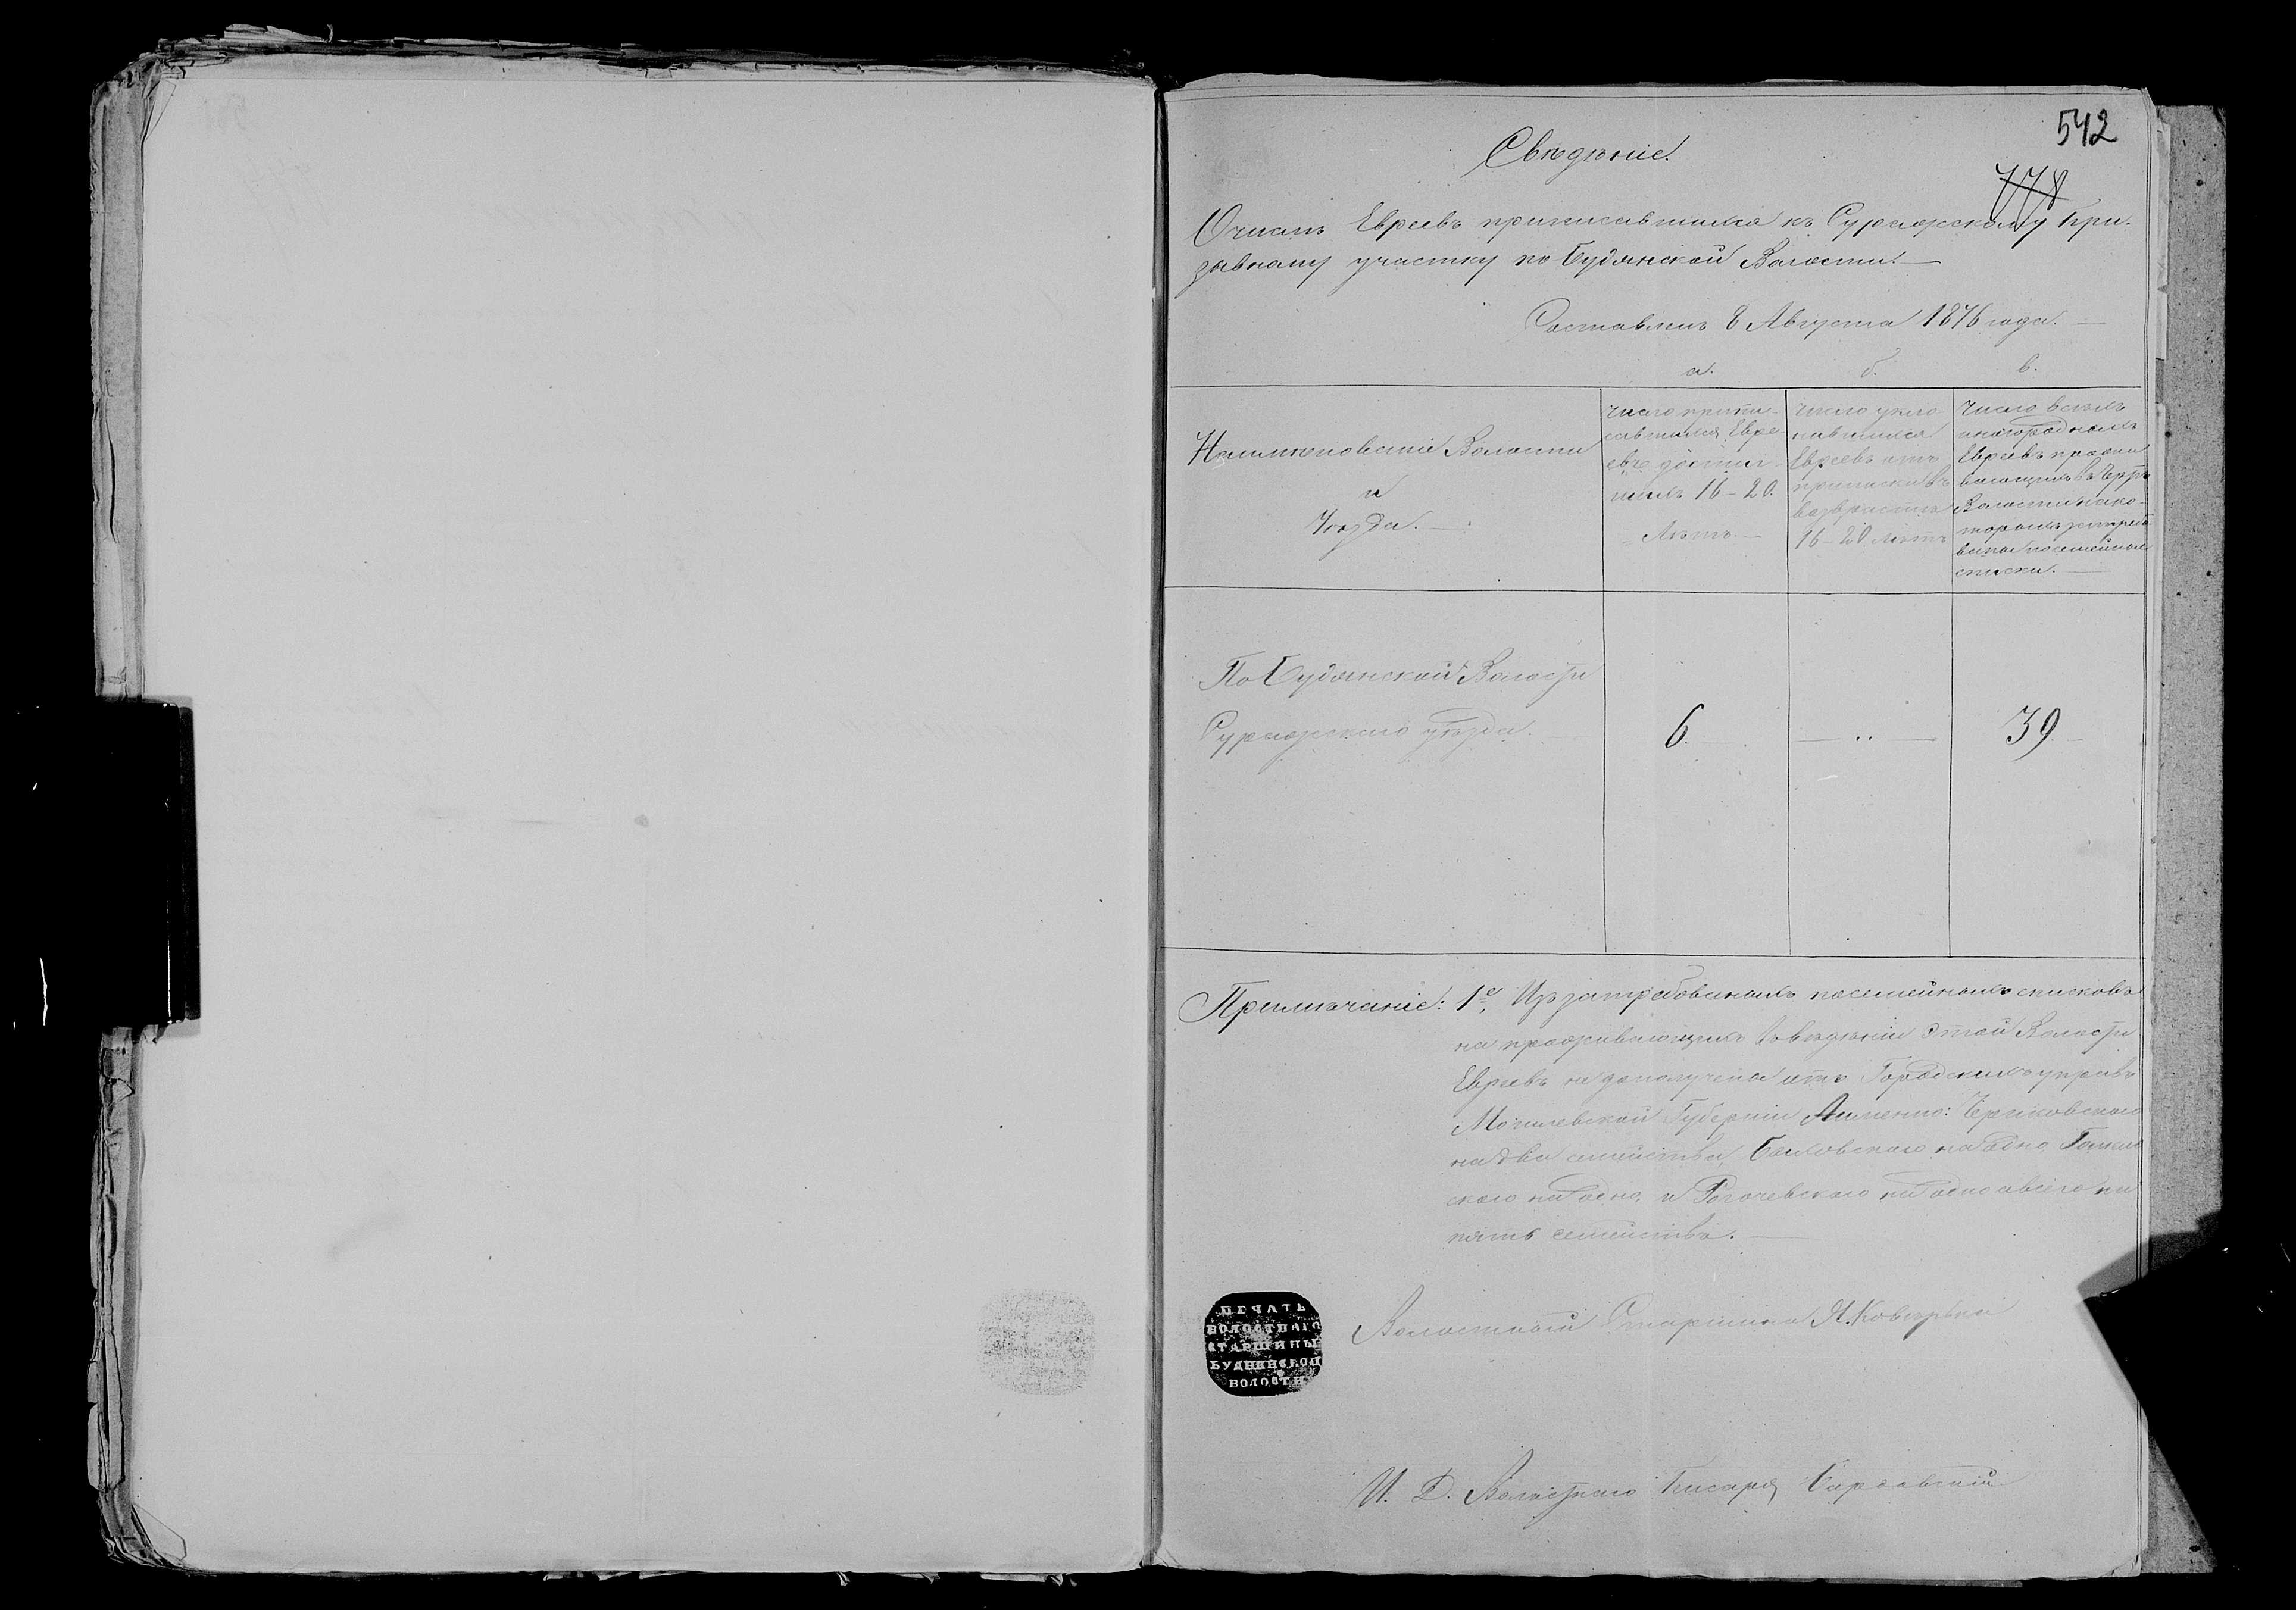 542
Свѣдѣніе.
778
О числѣ Евреевъ приписавшихся къ Суражскому при-
зывному участку по Будянской Волости.—
Составлен 8 Августа 1876 года.—
а. б. в.
Наименованіе Волости
и
Уѣзда.—
число припи-
савшихся Евре-
евъ достиг-
шихъ 16–20
Лѣтъ.—
Число укло-
нившихся
Евреевъ отъ
приписки въ
возврастѣ
16–20 лѣтъ
Число всѣхъ
иногороднихъ
Евреевъ прожи
вающихъ въ
Волости на ко-
торыхъ затребо
ваны посемейные
списки.—
По Будянской Волости
Суражскаго уѣзда.—
6.— — „ — 39—
Примѣчаніе: 1е, Изъ затребованыхъ посемейныхъ списковъ
на проживающихъ въ вѣдѣніи этой Волости
Евреевъ не дополучены отъ Городскихъ управъ
Могилевской Губерніи Аименно: Чериковскаго
на два семейства, Быховскаго на одно, Гомель
скаго на одно, и Рогачевскаго на одно авсего на
пять семействъ.—
ПЕЧАТЬ
ВОЛОСТНАГО
СТАРШИНЫ
БУДЯНСКОЙ
ВОЛОСТИ
Волостный Старшина Я.
И. Д. Волостнаго Писаря